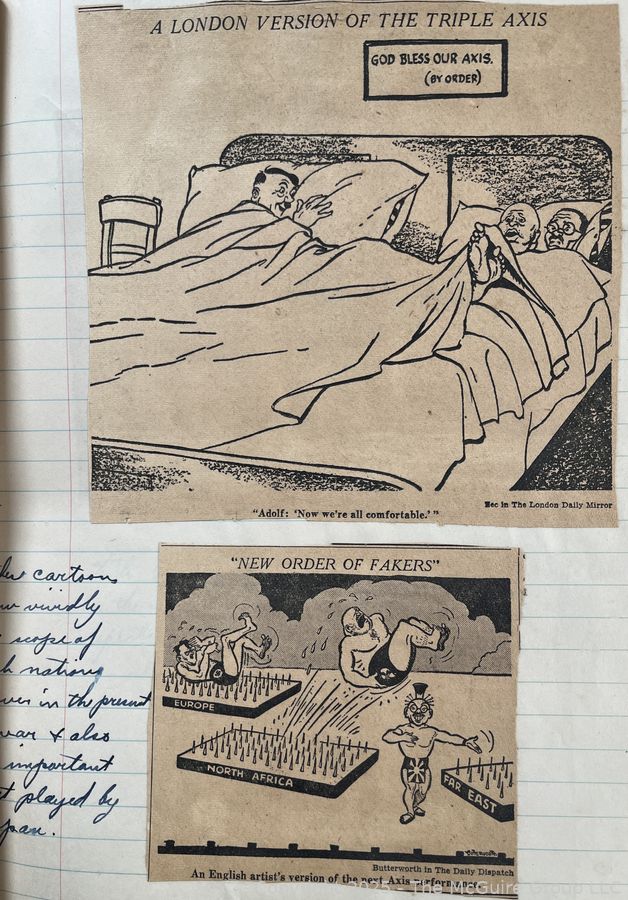 A LONDON VERSION OF THE TRIPLE AXIS
GOD BLESS OUR AXIS.
(BY ORDER)
Zec in The London Daily Mirror
"Adolf: 'Now we're all comfortable.' "
"NEW ORDER OF FAKERS"
EUROPE
NORTH AFRICA
FAR EAST
Butterworth in The Daily Dispatch
An English artist's version of the next Axis performance.
cartoons
vividly
scope of
nations
in the present
war & also
important
played by
2025 - The McGuire Group LLC